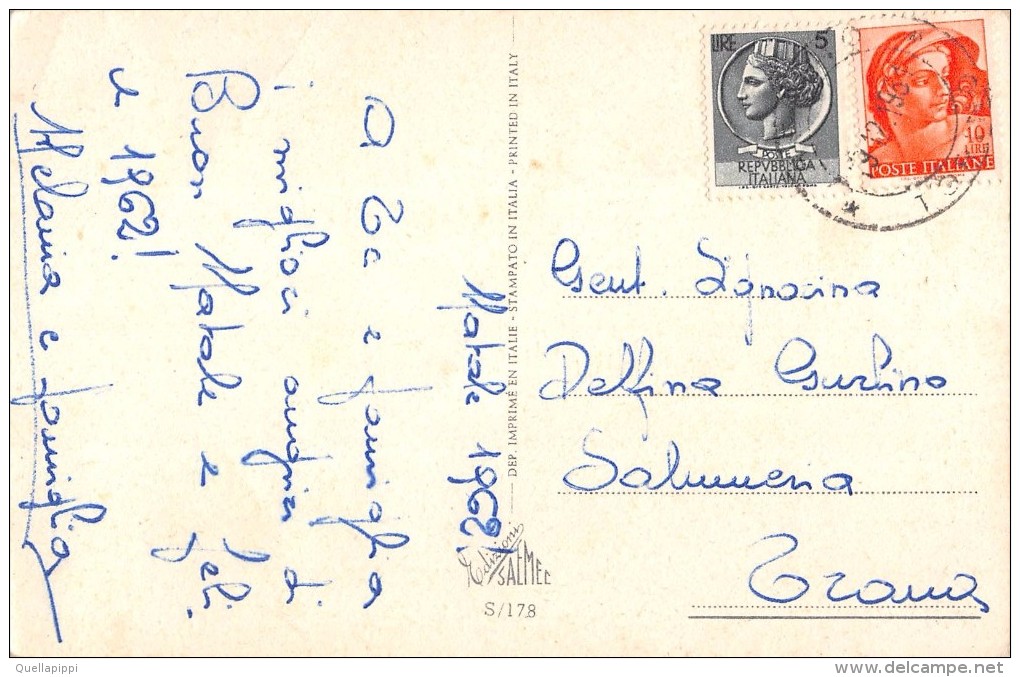 Natale 1962!
A te e famiglia
i migliori auguri di
Buon Natale e feli
e 1962!
Melania e famiglia
DEP. IMPRIME EN ITALIE - STAMPATO IN ITALIA - PRINTED IN ITALY
Edizioni
SAEMEC
S/178
LIRE 5
POSTE
REPVBBLICA
ITALIANA
10
LIRE
POSTE ITALIANE
Gent. Signorina
Delfina
Salumeria
Trana
Quellapippi
delcampe.net